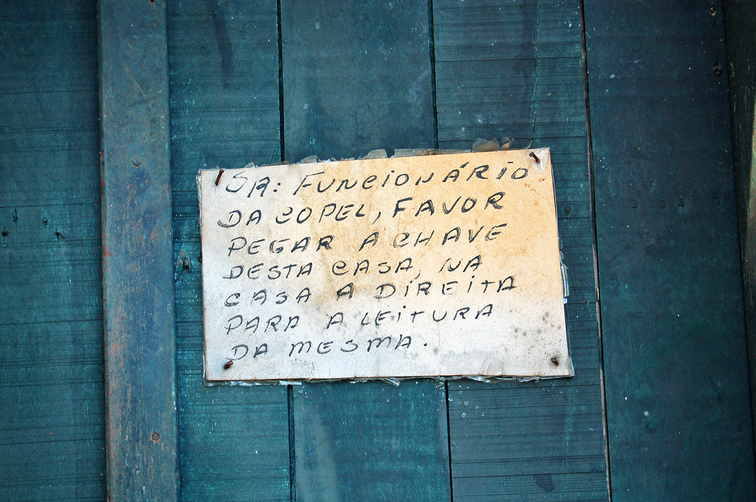 SR: FUNCIONÁRIO
DA COPEL, FAVOR
PEGAR A CHAVE
DESTA CASA, NA
CASA A DIREITA
PARA A LEITURA
DA MESMA.